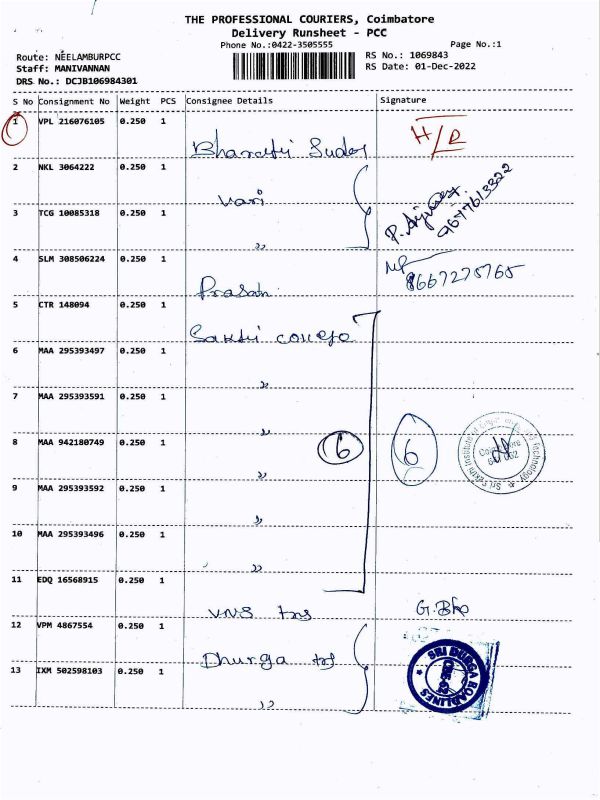 THE PROFESSIONAL COURIERS, Coimbatore
Delivery Runsheet - PCC
Phone No.:0422-3505555
Page No.:1
Route: NEELAMBURPCC
RS No.: 1069843
Staff: MANIVANNAN
RS Date: 01-Dec-2022
DRS No.: DCJB106984301
S No Consignment No Weight PCS Consignee Details Signature
1 VPL 216076105 0.250 1
Bharathi H/D
2 NKL 3064222 0.250 1
Vari
3 TCG 10085318 0.250 1
"
4 SLM 308506224 0.250 1
8667275765
5 CTR 148094 0.250 1
Sakthi college
6 MAA 295393497 0.250 1
"
7 MAA 295393591 0.250 1
"
8 MAA 942180749 0.250 1
6 6
"
9 MAA 295393592 0.250 1
"
10 MAA 295393496 0.250 1
"
11 EDQ 16568915 0.250 1
VNS
12 VPM 4867554 0.250 1
Dhurga
SRI DURGA ROADLINES
CBE-62
13 IXM 502598103 0.250 1
"